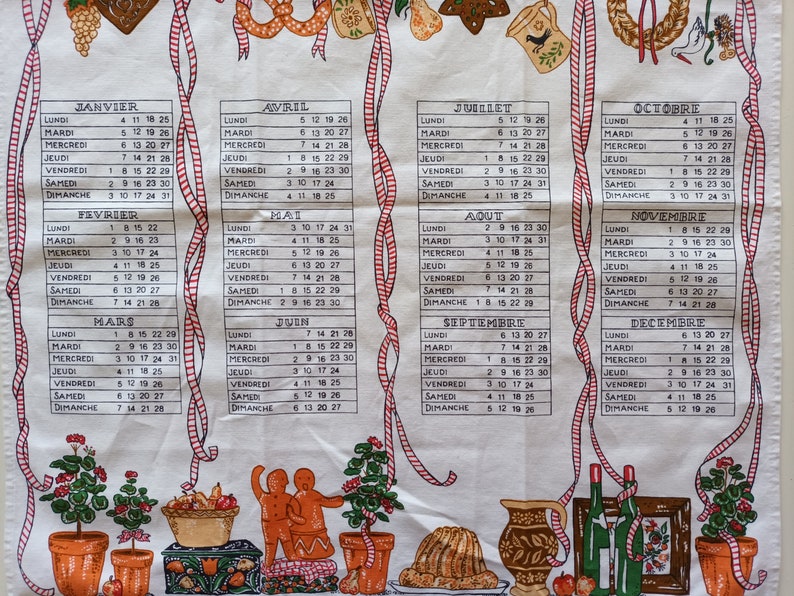 JANVIER
LUNDI 4 11 18 25
MARDI 5 12 19 26
MERCREDI 6 13 20 27
JEUDI 7 14 21 28
VENDREDI 1 8 15 22 29
SAMEDI 2 9 16 23 30
DIMANCHE 3 10 17 24 31
FEVRIER
LUNDI 1 8 15 22
MARDI 2 9 16 23
MERCREDI 3 10 17 24
JEUDI 4 11 18 25
VENDREDI 5 12 19 26
SAMEDI 6 13 20 27
DIMANCHE 7 14 21 28
MARS
LUNDI 1 8 15 22 29
MARDI 2 9 16 23 30
MERCREDI 3 10 17 24 31
JEUDI 4 11 18 25
VENDREDI 5 12 19 26
SAMEDI 6 13 20 27
DIMANCHE 7 14 21 28
AVRIL
LUNDI 5 12 19 26
MARDI 6 13 20 27
MERCREDI 7 14 21 28
JEUDI 1 8 15 22 29
VENDREDI 2 9 16 23 30
SAMEDI 3 10 17 24
DIMANCHE 4 11 18 25
MAI
LUNDI 3 10 17 24 31
MARDI 4 11 18 25
MERCREDI 5 12 19 26
JEUDI 6 13 20 27
VENDREDI 7 14 21 28
SAMEDI 1 8 15 22 29
DIMANCHE 2 9 16 23 30
JUIN
LUNDI 7 14 21 28
MARDI 1 8 15 22 29
MERCREDI 2 9 16 23 30
JEUDI 3 10 17 24
VENDREDI 4 11 18 25
SAMEDI 5 12 19 26
DIMANCHE 6 13 20 27
JUILLET
LUNDI 5 12 19 26
MARDI 6 13 20 27
MERCREDI 7 14 21 28
JEUDI 1 8 15 22 29
VENDREDI 2 9 16 23 30
SAMEDI 3 10 17 24 31
DIMANCHE 4 11 18 25
AOUT
LUNDI 2 9 16 23 30
MARDI 3 10 17 24 31
MERCREDI 4 11 18 25
JEUDI 5 12 19 26
VENDREDI 6 13 20 27
SAMEDI 7 14 21 28
DIMANCHE 1 8 15 22 29
SEPTEMBRE
LUNDI 6 13 20 27
MARDI 7 14 21 28
MERCREDI 1 8 15 22 29
JEUDI 2 9 16 23 30
VENDREDI 3 10 17 24
SAMEDI 4 11 18 25
DIMANCHE 5 12 19 26
OCTOBRE
LUNDI 4 11 18 25
MARDI 5 12 19 26
MERCREDI 6 13 20 27
JEUDI 7 14 21 28
VENDREDI 1 8 15 22 29
SAMEDI 2 9 16 23 30
DIMANCHE 3 10 17 24 31
NOVEMBRE
LUNDI 1 8 15 22 29
MARDI 2 9 16 23 30
MERCREDI 3 10 17 24
JEUDI 4 11 18 25
VENDREDI 5 12 19 26
SAMEDI 6 13 20 27
DIMANCHE 7 14 21 28
DECEMBRE
LUNDI 6 13 20 27
MARDI 7 14 21 28
MERCREDI 1 8 15 22 29
JEUDI 2 9 16 23 30
VENDREDI 3 10 17 24 31
SAMEDI 4 11 18 25
DIMANCHE 5 12 19 26